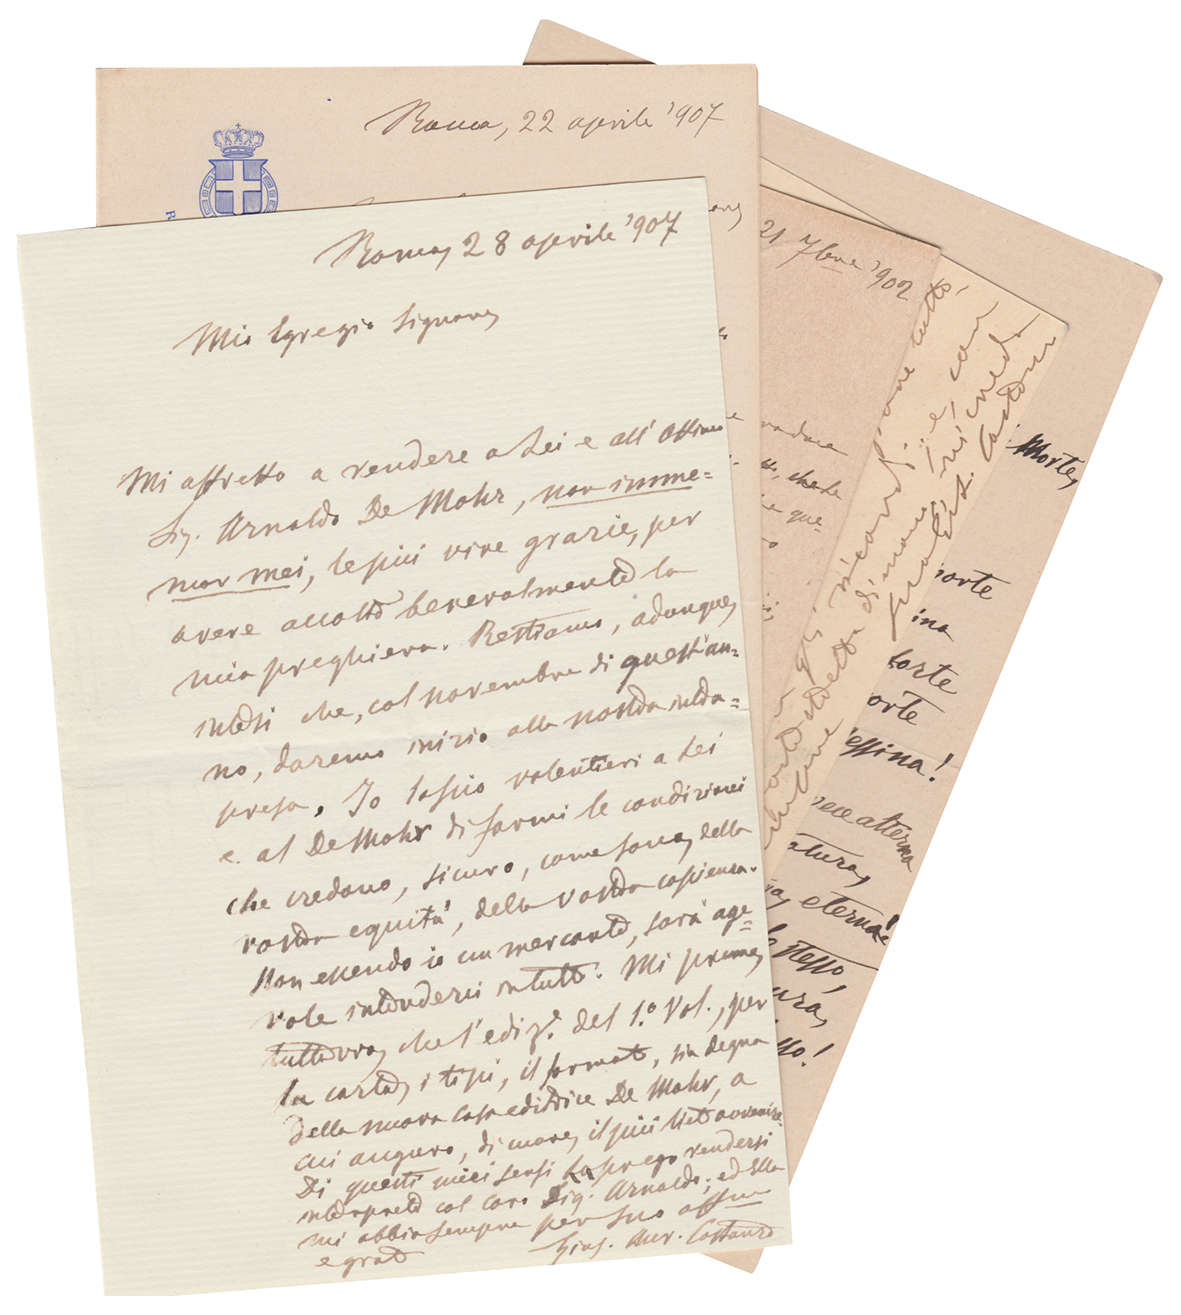 Roma, 28 aprile '907
Mio Egregio Signore,
Mi affretto a rendere a Lei e all' Ottimo
Sig. Arnaldo De Mohr, non imme=
mor mei, le più vive grazie, per
avere accolto benevolmente la
mia preghiera. Restiamo, adunque,
intesi che, col novembre di quest'an=
no, daremo inizio alla nostra intra=
presa. Io lascio volentieri a Lei
e al De Mohr di farmi le condizioni
che credano, sicuro, come sono, della
vostra equità, della vostra sapienza.
Non essendo io un mercante, sarà age=
vole intenderci in tutto. Mi preme,
tuttavia, che l'ediz.e del 1.o Vol., per
la carta, i tipi, il formato, sia degna
della nuova Casa editrice De Mohr, a
cui auguro, di cuore, il più lieto avvenire.
Di questi miei sensi La prego rendersi
interprete col caro Sig. Arnaldo; ed Ella
mi abbia sempre per suo aff.mo
e grato
Gius. Aur. Costanzo
Roma, 22 aprile '907
21 7bre '902
che le
que=
tutto
, con
credo
di cuore
Costanzo
Morte,
orte
ina
orte
orte
essina!
atterra
atura,
eterna!
stesso,
ura,
sso!